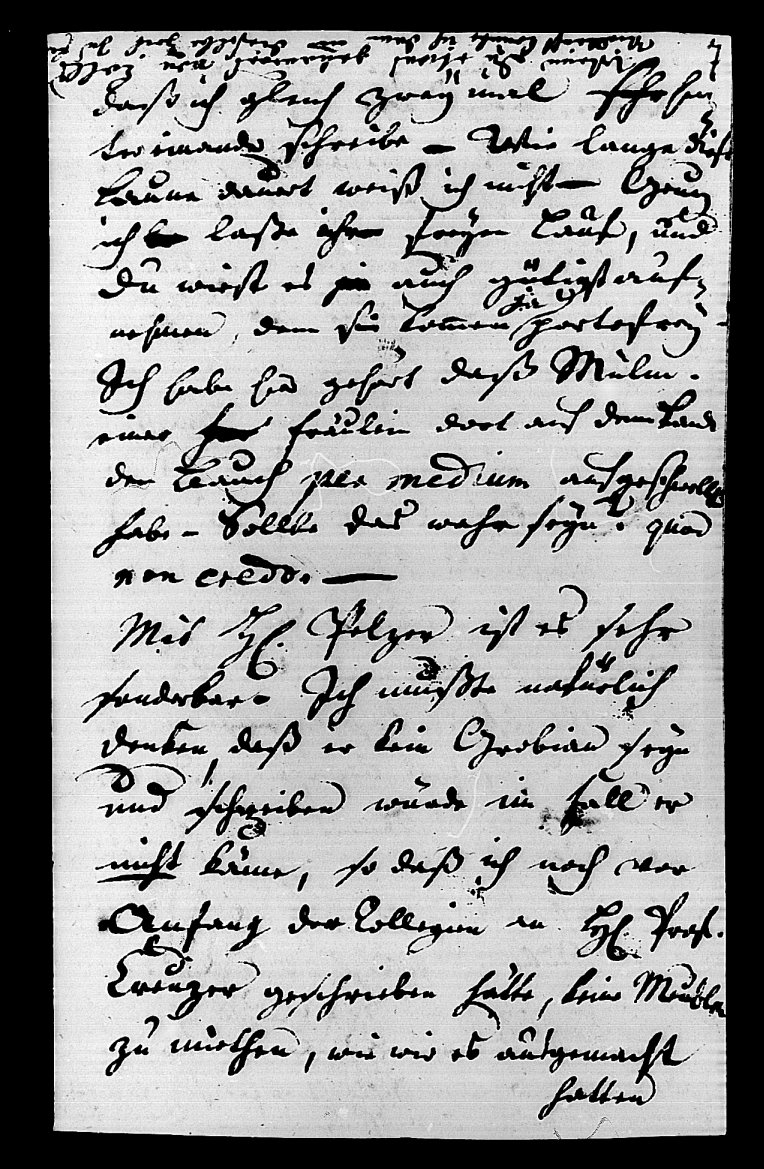 7
daß ich gleich zwey mal
schreibe – Wie lange diese
Laune dauert weiß ich nicht – Genug
ich laße ihr freyen Lauf, und
Du wirst es auch gütigst auf-
nehmen, denn sie kommen ja portofrey –
Ich habe hier gehört daß Mülm.
einer Fräulein dort auf dem Lande
den Bauch per medium aufgeschwellt
habe – Sollte das wahr seyn? quod
non credo. —
Mit H. Pelzer ist es sehr
sonderbar. Ich mußte natürlich
denken, daß er kein Grobian seyn
und schreiben würde im Fall er
nicht käme, so daß ich noch vor
Anfang der Collegien an H. Prof.
Creuzer geschrieben hätte, keine Meublen
zu miethen, wie wir es ausgemacht
hatten